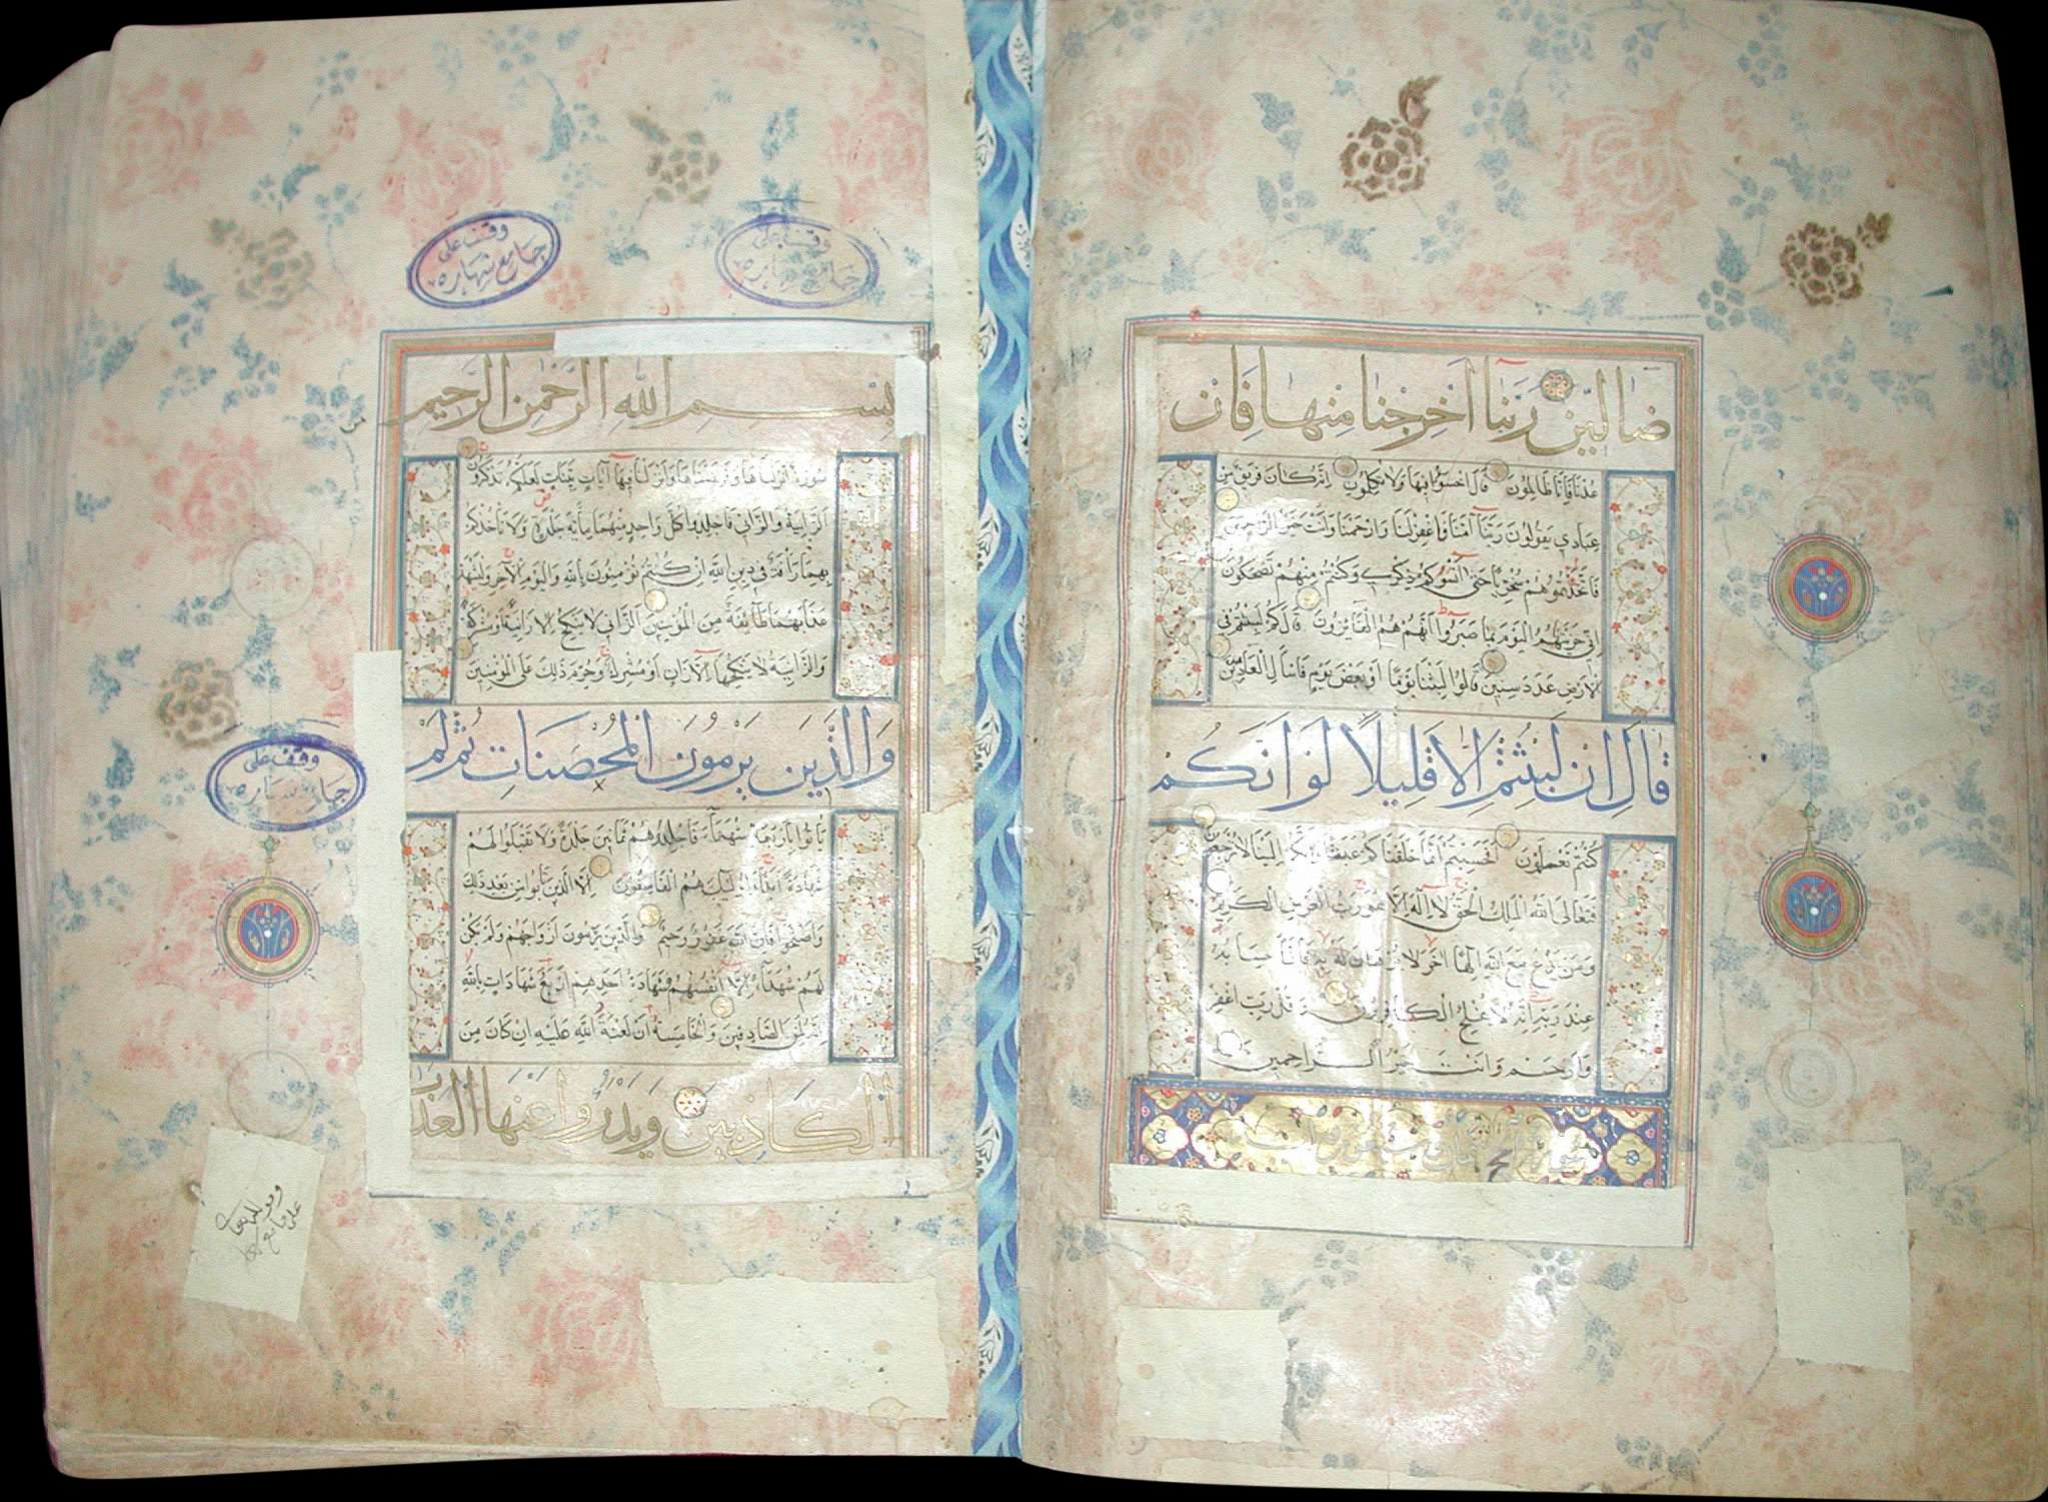 ضالين ربنا أخرجنا منها فإن
عدنا فإنا ظالمون قال اخسؤا فيها ولا تكلمون إنه كان فريق من
عبادي يقولون ربنا آمنا فاغفر لنا وارحمنا وأنت خير الراحمين
فاتخذتموهم سخريا حتى أنسوكم ذكري وكنتم منهم تضحكون
إني جزيتهم اليوم بما صبروا أنهم هم الفائزون قال كم لبثتم في
الأرض عدد سنين قالوا لبثنا يوما أو بعض يوم فاسأل العادين
قال إن لبثتم إلا قليلا لو أنكم
كنتم تعلمون أفحسبتم أنما خلقناكم عبثا وأنكم إلينا لا ترجعون
فتعالى الله الملك الحق لا إله إلا هو رب العرش الكريم
ومن يدع مع الله إلها آخر لا برهان له به فإنما حسابه
عند ربه إنه لا يفلح الكافرون وقل رب اغفر
وارحم وأنت خير الراحمين
وقف على
جامع شهاره
وقف على
جامع شهاره
بسم الله الرحمن الرحيم
سورة أنزلناها وفرضناها وأنزلنا فيها آيات بينات لعلكم تذكرون
الزانية والزاني فاجلدوا كل واحد منهما مائة جلدة ولا تأخذكم
بهما رأفة في دين الله إن كنتم تؤمنون بالله واليوم الآخر وليشهد
عذابهما طائفة من المؤمنين الزاني لا ينكح إلا زانية أو مشركة
والزانية لا ينكحها إلا زان أو مشرك وحرم ذلك على المؤمنين
والذين يرمون المحصنات ثم لم
يأتوا بأربعة شهداء فاجلدوهم ثمانين جلدة ولا تقبلوا لهم
شهادة أبدا وأولئك هم الفاسقون إلا الذين تابوا من بعد ذلك
وأصلحوا فإن الله غفور رحيم والذين يرمون أزواجهم ولم يكن
لهم شهداء إلا أنفسهم فشهادة أحدهم أربع شهادات بالله
إنه لمن الصادقين والخامسة أن لعنة الله عليه إن كان من
الكاذبين ويدرؤا عنها العذاب
وقف على
جامع شهاره